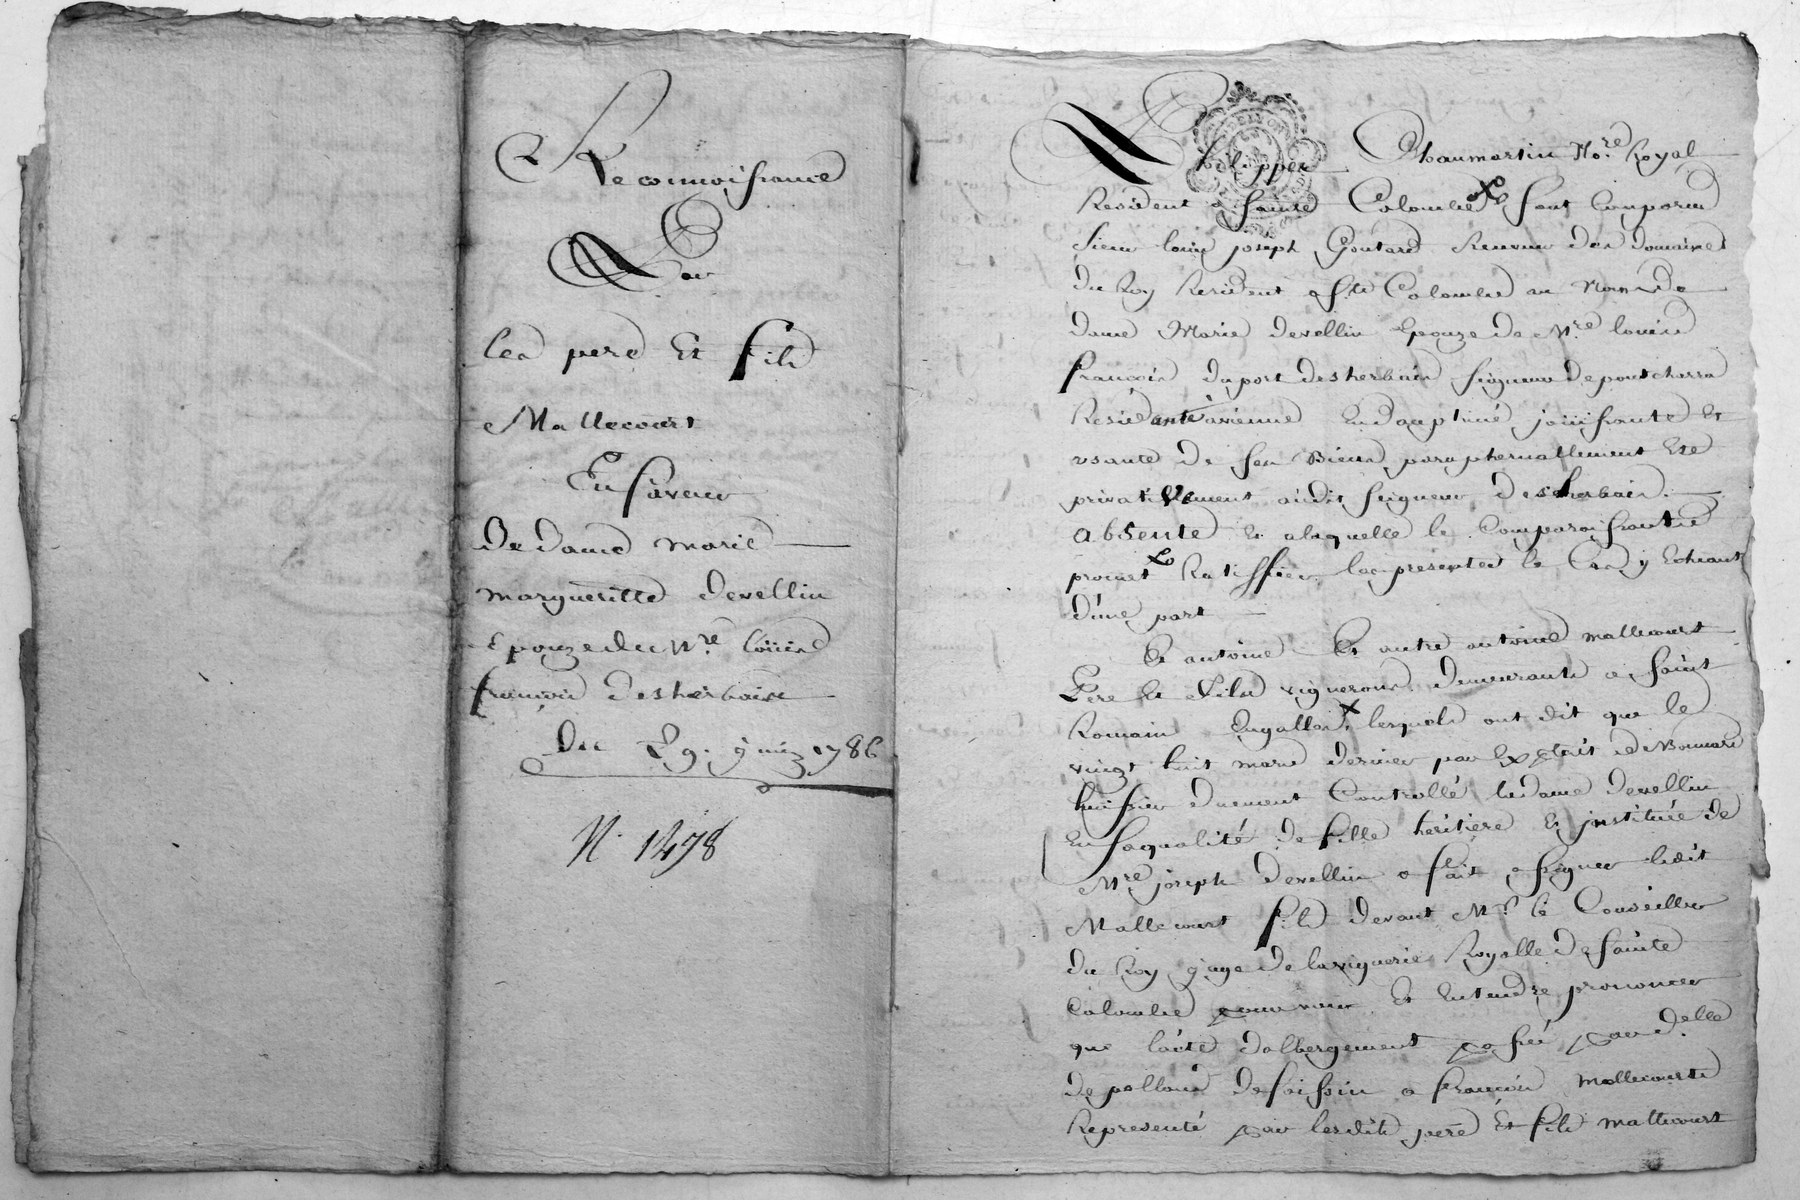 Reconnoissance
Par
Les pere Et fils
Mallecourt
En faveur
De dame marie
margueritte devellin
Epouze de Mre loüis
françois desherbais
Du 29. juin 1786
N. 1478
Philippe Chaumartin No.re Royal
Resident a sainte Colombe sont comparus
sieur louis joseph Goutard Receveur des domaines
du Roy Resident a ste Colombe au Nom de
dame Marie devellin Epouze de Mre louis
françois duport desherbais seigneur de pontcharra
Residante a vienne En dauphiné joüissante Et
usante de ses Biens paraphernallement Et
privativement audit seigneur desherbais
absente Et a laquelle le Comparoissant
promet Ratiffier les presentes le Cas y Echeant
d'une part
Et antoine Et autre antoine mallecourt
Pere Et Fils vignerons demeurants a saint
Romain Engallas lesquels ont dit que le
vingt huit mars dernier par Exploit de Bonnard
huissier duement Controllé ladame devellin
En sa qualité de fille heritiere Et instituée de
Mre joseph devellin a fait assigner ledit
Mallecourt fils devant Mr le Conseiller
du Roy juge de la viguerie Royalle de sainte
Colombe pour voir Et Entendre prononcer
que lacte dalbergement passé par delle
de polloud de saissin a françois mallecourt
Representé par lesdits pere Et fils mallecourt